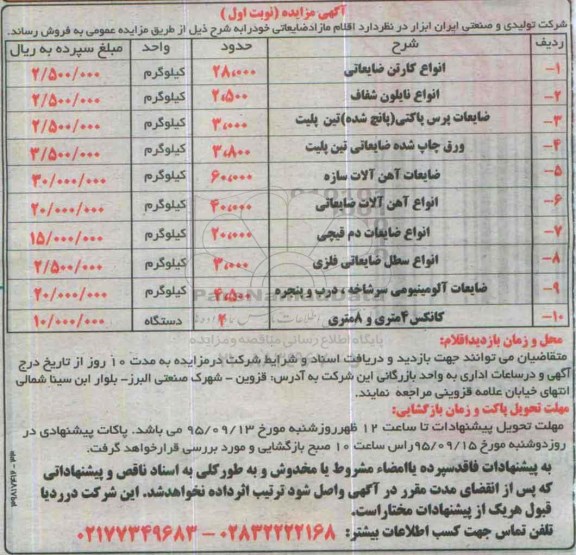 آگهی مزایده (نوبت اول)
شرکت تولیدی و صنعتی ایران ابزار در نظردارد اقلام مازادضایعاتی خودرابه شرح ذیل از طریق مزایده عمومی به فروش رساند.
ردیف شرح حدود واحد مبلغ سپرده به ریال
۱- انواع کارتن ضایعاتی ۲۸،۰۰۰ کیلوگرم ۲/۵۰۰/۰۰۰
۲- انواع نایلون شفاف ۲،۵۰۰ کیلوگرم ۲/۵۰۰/۰۰۰
۳- ضایعات پرس پاکتی(پانچ شده)تین پلیت ۳،۰۰۰ کیلوگرم ۲/۵۰۰/۰۰۰
۴- ورق چاپ شده ضایعاتی تین پلیت ۳،۸۰۰ کیلوگرم ۳/۵۰۰/۰۰۰
۵- ضایعات آهن آلات سازه ۶۰،۰۰۰ کیلوگرم ۳۰/۰۰۰/۰۰۰
۶- انواع آهن آلات ضایعاتی ۴۰،۰۰۰ کیلوگرم ۲۰/۰۰۰/۰۰۰
۷- انواع ضایعات دم قیچی ۲۰،۰۰۰ کیلوگرم ۱۵/۰۰۰/۰۰۰
۸- انواع سطل ضایعاتی فلزی ۳،۰۰۰ کیلوگرم ۲/۵۰۰/۰۰۰
۹- ضایعات آلومینیومی سرشاخه ، درب و پنجره ۴،۵۰۰ کیلوگرم ۲۰/۰۰۰/۰۰۰
۱۰- کانکس۴متری و ۸متری ۴ دستگاه ۱۰/۰۰۰/۰۰۰
پایگاه اطلاع رسانی مناقصه و مزایده
محل و زمان بازدیداقلام:
متقاضیان می توانند جهت بازدید و دریافت اسناد و شرایط شرکت درمزایده به مدت ۱۰ روز از تاریخ درج
آگهی و درساعات اداری به واحد بازرگانی این شرکت به آدرس: قزوین - شهرک صنعتی البرز- بلوار ابن سینا شمالی
انتهای خیابان علامه قزوینی مراجعه نمایند.
مهلت تحویل پاکت و زمان بازگشایی:
مهلت تحویل پیشنهادات تا ساعت ۱۲ ظهرروزشنبه مورخ ۹۵/۰۹/۱۳ می باشد. پاکات پیشنهادی در
روزدوشنبه مورخ ۹۵/۰۹/۱۵راس ساعت ۱۰ صبح بازگشایی و مورد بررسی قرارخواهد گرفت.
به پیشنهادات فاقدسپرده یاامضاء مشروط یا مخدوش و به طورکلی به اسناد ناقص و پیشنهاداتی
که پس از انقضای مدت مقرر در آگهی واصل شود ترتیب اثرداده نخواهدشد. این شرکت درردیا
قبول هریک از پیشنهادات مختاراست.
تلفن تماس جهت کسب اطلاعات بیشتر: ۰۲۸۳۲۲۲۲۱۶۸ - ۰۲۱۷۷۳۴۹۶۸۳